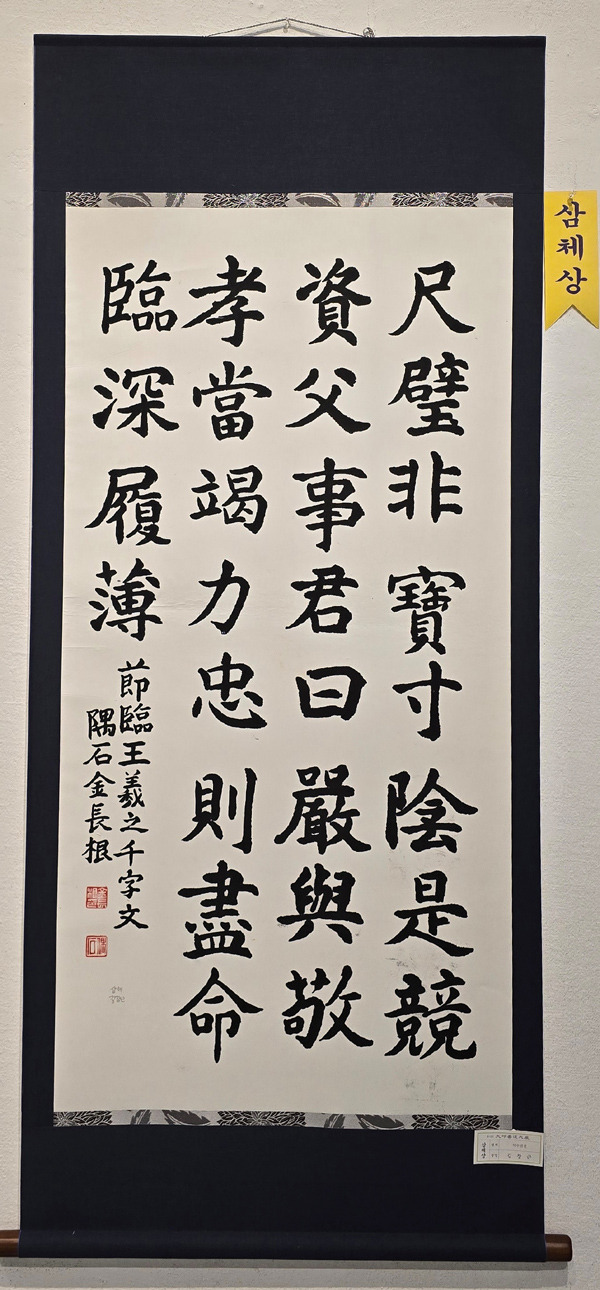 尺璧非寶寸陰是競
資父事君曰嚴與敬
孝當竭力忠則盡命
臨深履薄
節臨王羲之千字文
隅石金長根
삼체상
삼체상